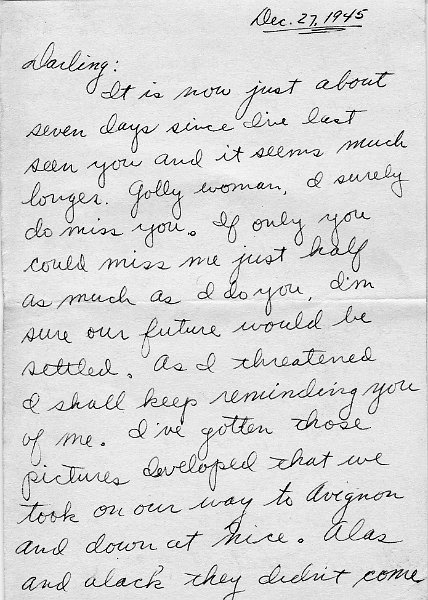 Dec. 27, 1945
Darling:
It is now just about
seven days since I've last
seen you and it seems much
longer. Golly woman, I surely
do miss you. If only you
could miss me just half
as much as I do you, I'm
sure our future would be
settled. As I threatened
I shall keep reminding you
of me. I've gotten those
pictures developed that we
took on our way to Avignon
and down at Nice. Alas
and alack they didn't come